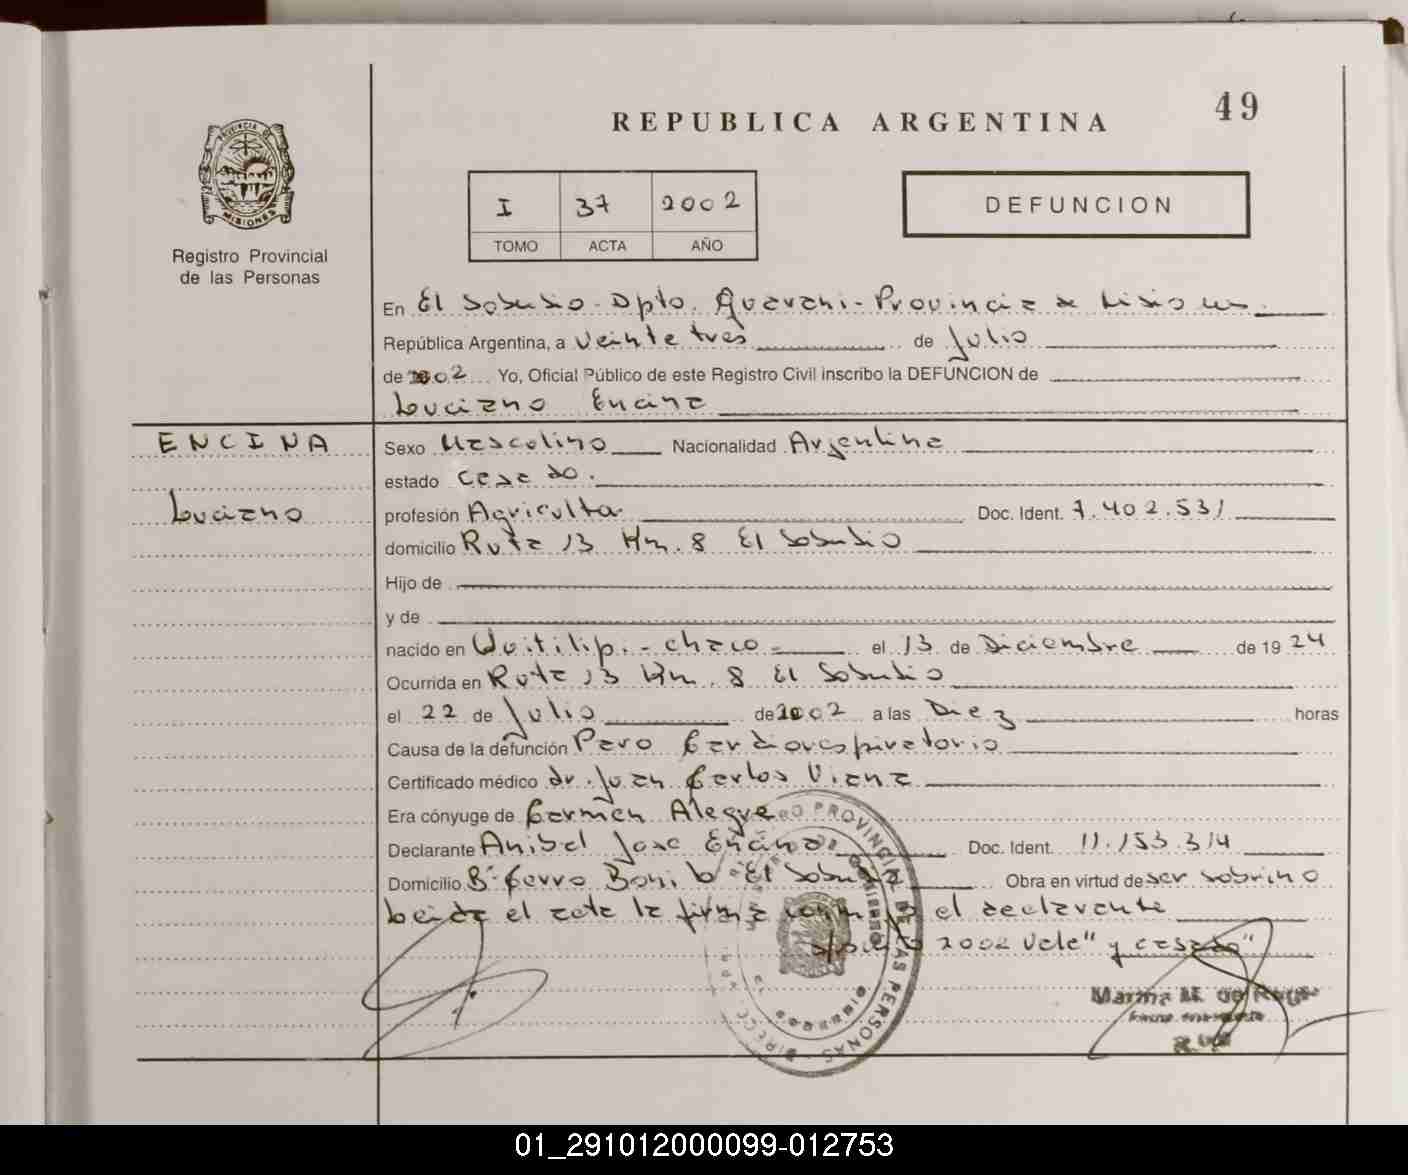 49
REPUBLICA ARGENTINA
PROVINCIA DE
MISIONES
Registro Provincial
de las Personas
I 37 2002
TOMO ACTA AÑO
DEFUNCION
En El Soberbio - Dpto. Guarani - Provincia de Misiones.
República Argentina, a veinte tres de Julio
de 2002 Yo, Oficial Público de este Registro Civil inscribo la DEFUNCION de
Luciano Encina
ENCINA
Luciano
Sexo Masculino Nacionalidad Argentina
estado casado.
profesión Agricultor Doc. Ident. 7.402.531
domicilio Ruta 13 Km. 8 El Soberbio
Hijo de
y de
nacido en Quitilipi - Chaco - el 13 de Diciembre de 1924
Ocurrida en Ruta 13 Km. 8 El Soberbio
el 22 de Julio de 2002 a las Diez horas
Causa de la defunción Paro Cardiorespiratorio
Certificado médico dr. Juan Carlos Viana
Era cónyuge de Carmen Alegre
Declarante Anibal Jose Encina Doc. Ident. 11.153.314
Domicilio Bº Cerro Bonito El Soberbio Obra en virtud de ser sobrino
Leida el acta la firma conmigo el declarante
2002 Vale" y casado"
Marina M. de
01_291012000099-012753